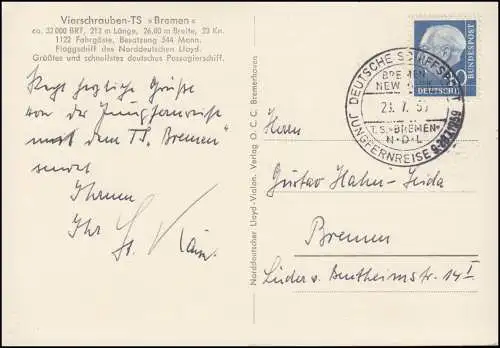 Vierschrauben-TS »Bremen«
ca. 32 000 BRT, 212 m Länge, 26,60 m Breite, 23 Kn.
1122 Fahrgäste, Besatzung 544 Mann.
Flaggschiff des Norddeutschen Lloyd.
Größtes und schnellstes deutsches Passagierschiff.
Recht herzliche Grüße
von der Jungfernreise
mit dem TS. Bremen"
sendet
Ihnen
Ihr
Norddeutscher Lloyd-Vialon, Verlag O. C. C. Bremerhaven
DEUTSCHE BUNDESPOST
DEUTSCHE SCHIFFSPOST
BREMEN
NEW
23. 7. 59
T.S. »BREMEN«
N·D·L
JUNGFERNREISE
Herrn
Gustav Hahn-Seida
Bremen
Lüder v. Bentheimstr. 14 I